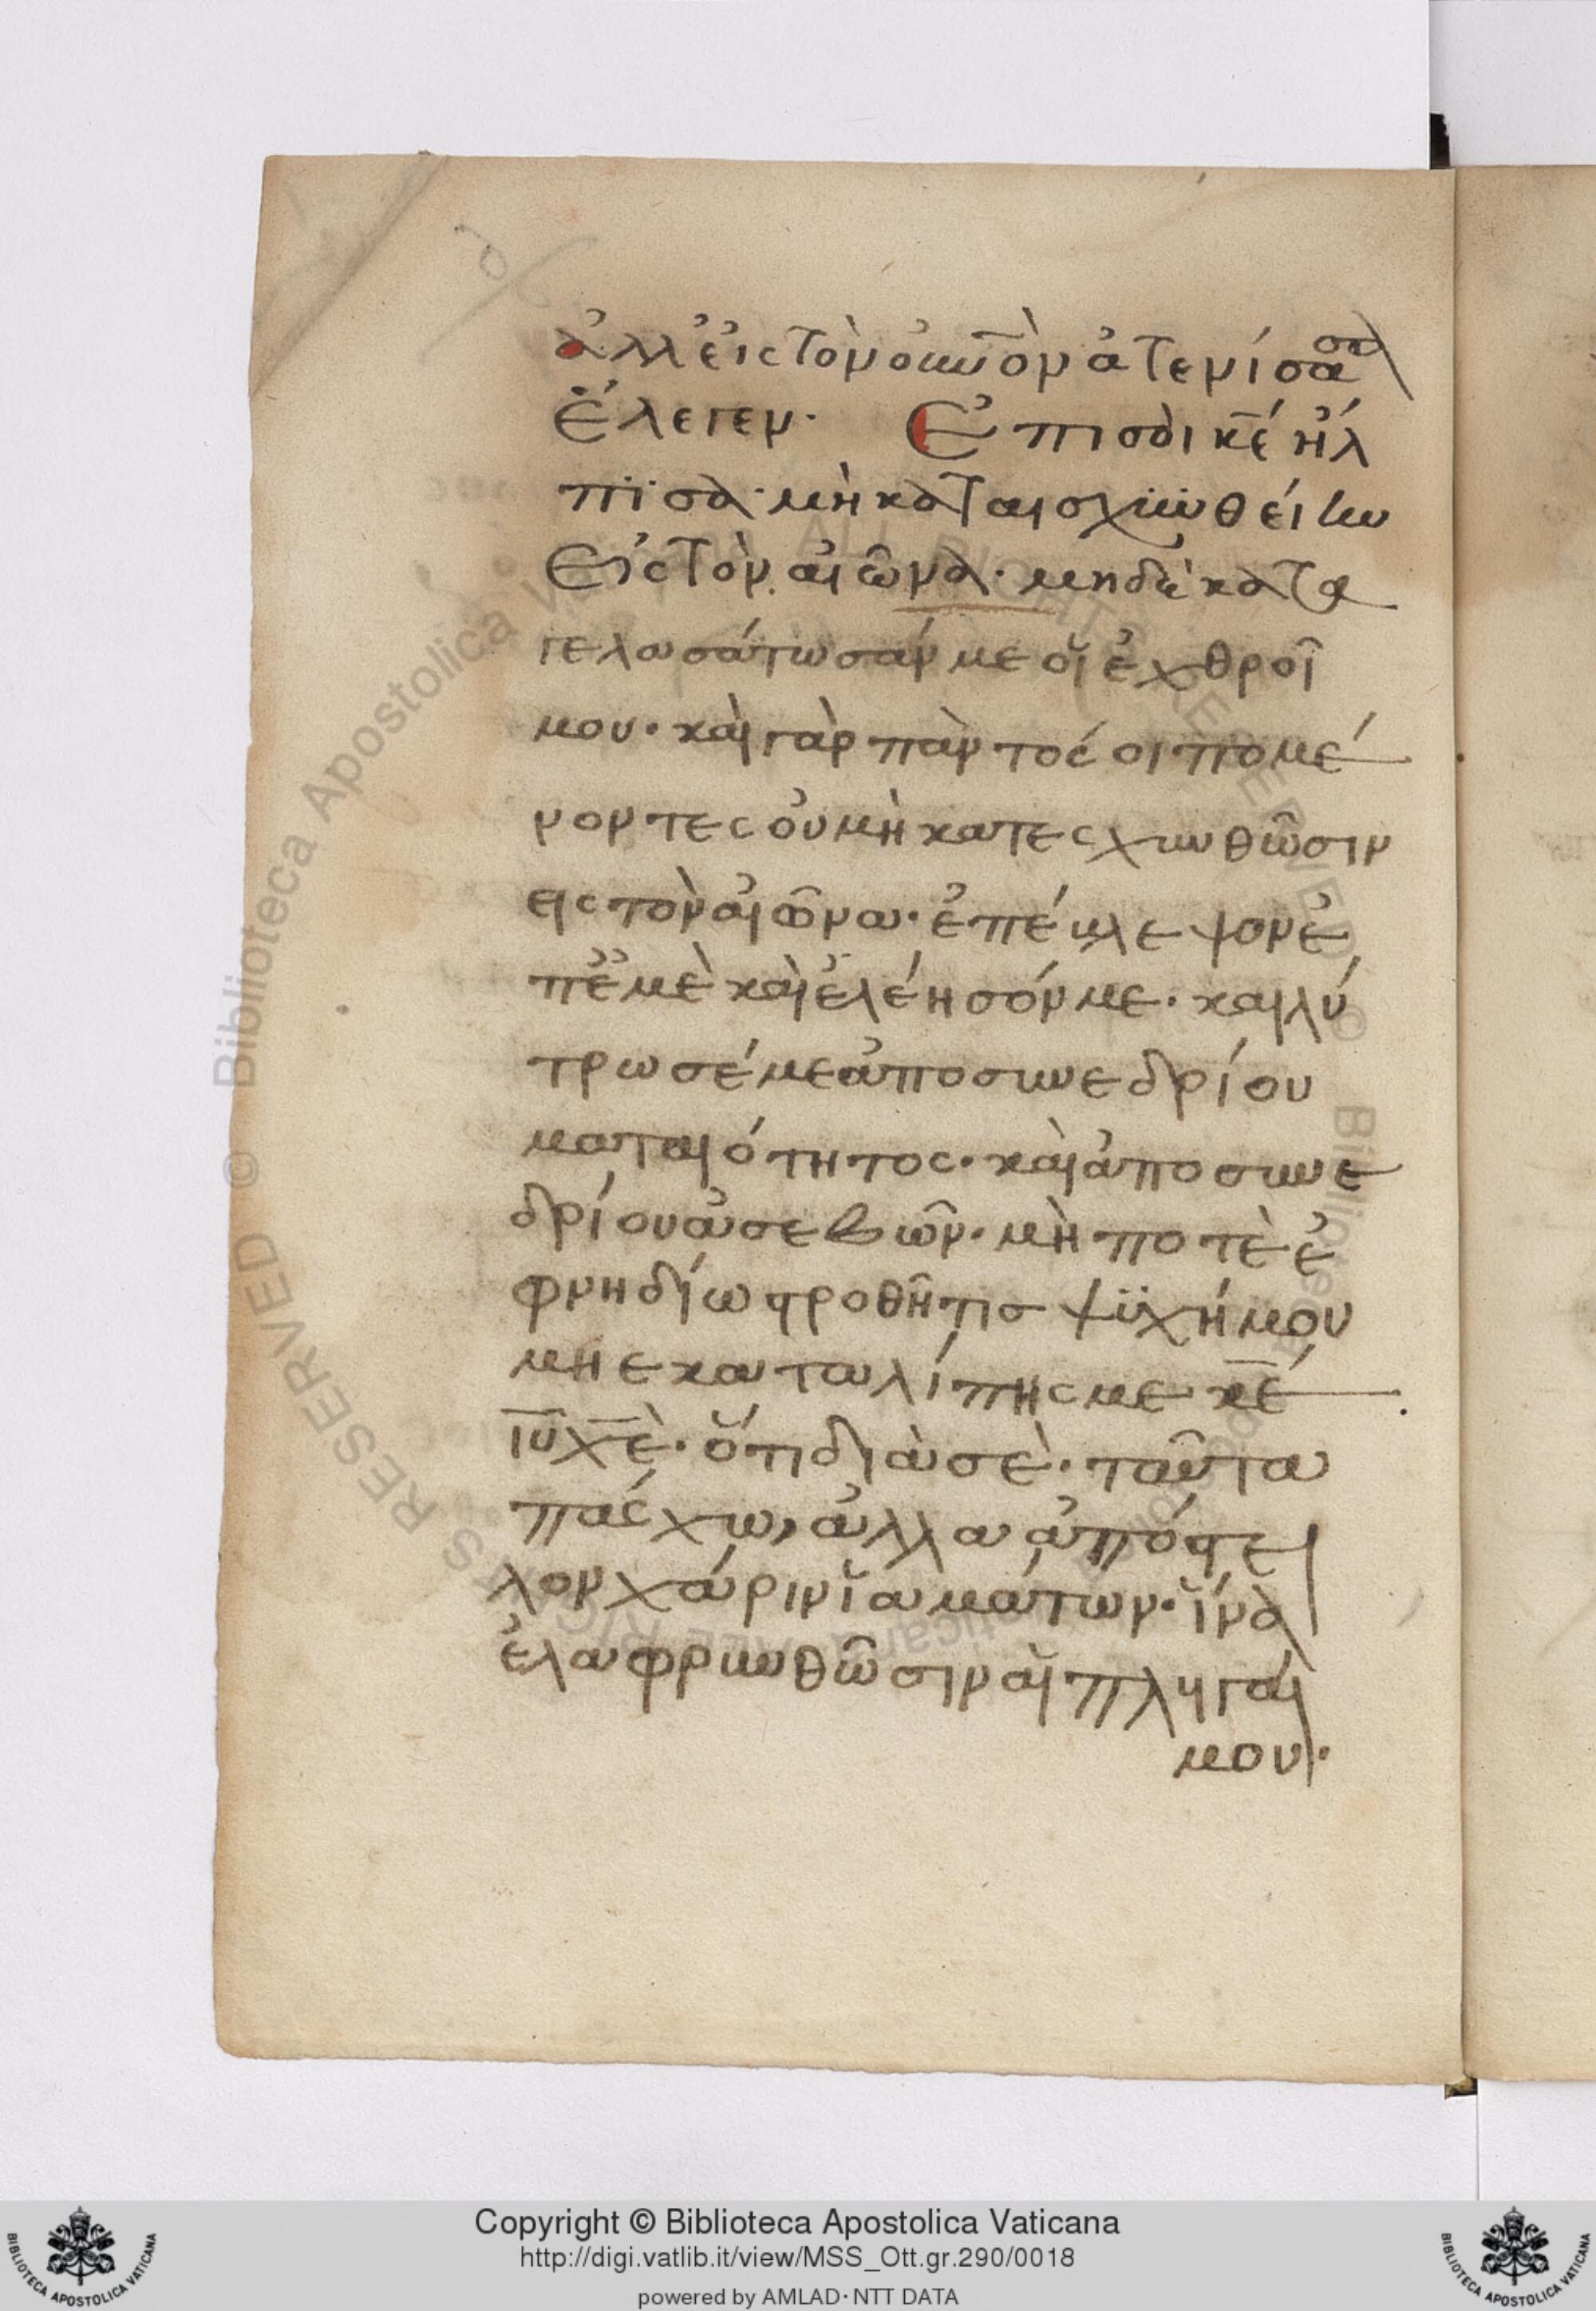 ἀλλ εἰς τὸν οὐνὸν ἀτενίσασα
ἔλεγεν· Ἐπι σοὶ κ̅έ̅ ἤλ
πϊσα· μὴ καταισχϋνθείην
Εἰς τὸν αἰῶνα· μηδὲ κατα
γελασάτωσάν με οἵ ἐχθροῖ
μου· καὶ γὰρ πὰντοσ οιπομέ
νοντες οὐ μὴ κατεσχυνθῶσιν
εις τὸν αἰῶνα· ἐπέκλεψον ἐ
π ἐμὲ καὶ ἐλέησόν με· και λύ
τρωσέ με ἀπο συνεδρίου
ματαιότητος· καὶ ἀπο συνε
δρίου ἀσεβῶν· μὴ ποτὲ ἐ
φνηδίω τροθῆ τισ ψϋχή μου
μη εκαταλίπης με κ̅έ̅
ι̅υ̅ χ̅ὲ̅· ὅτι διὰ σὲ· ταῦτα
πάσχω, ἀλλα ἀπόστει
λον χάριν ἵαμάτων· ἵνα
ἐλαφρυνθῶσιν αἵ πληγαί
μου·
Copyright © Biblioteca Apostolica Vaticana
http://digi.vatlib.it/view/MSS_Ott.gr.290/0018
powered by AMLAD·NTT DATA